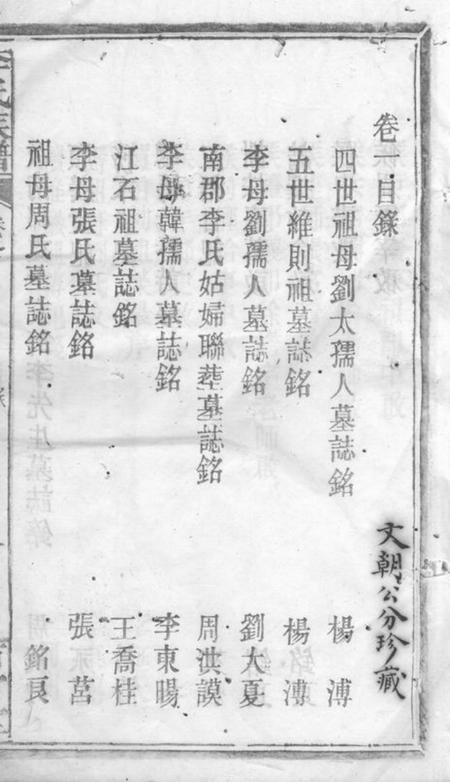 卷一目錄
文朝公分珍藏
四世祖母劉太孺人墓誌銘 楊溥
五世維則祖墓誌銘 楊溥
李母劉孺人墓誌銘 劉大夏
南郡李氏姑婦聯塟墓誌銘 周洪謨
李母韓孺人墓誌銘 李東暘
江石祖墓誌銘 王喬桂
李母張氏墓誌銘 張莒
祖母周氏墓誌銘 銘良
李氏族譜